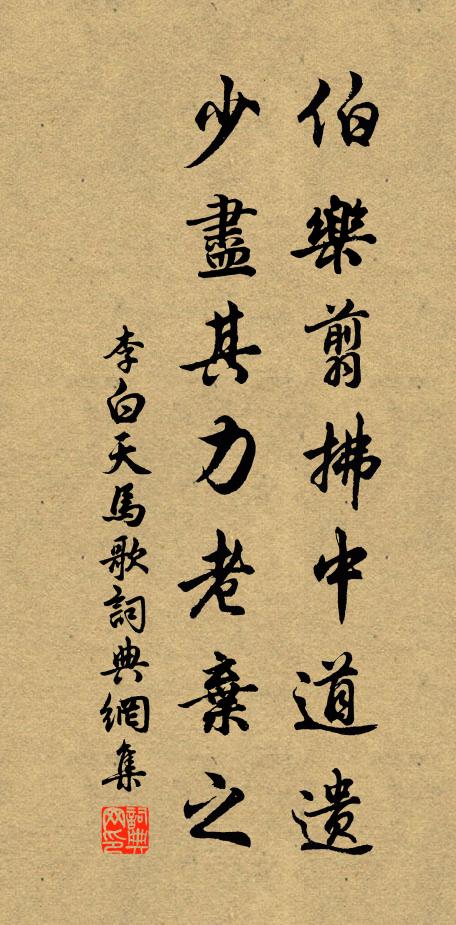 伯樂翦拂中道遺
少盡其力老棄之
李白天馬歌詞典網集
詞典网印